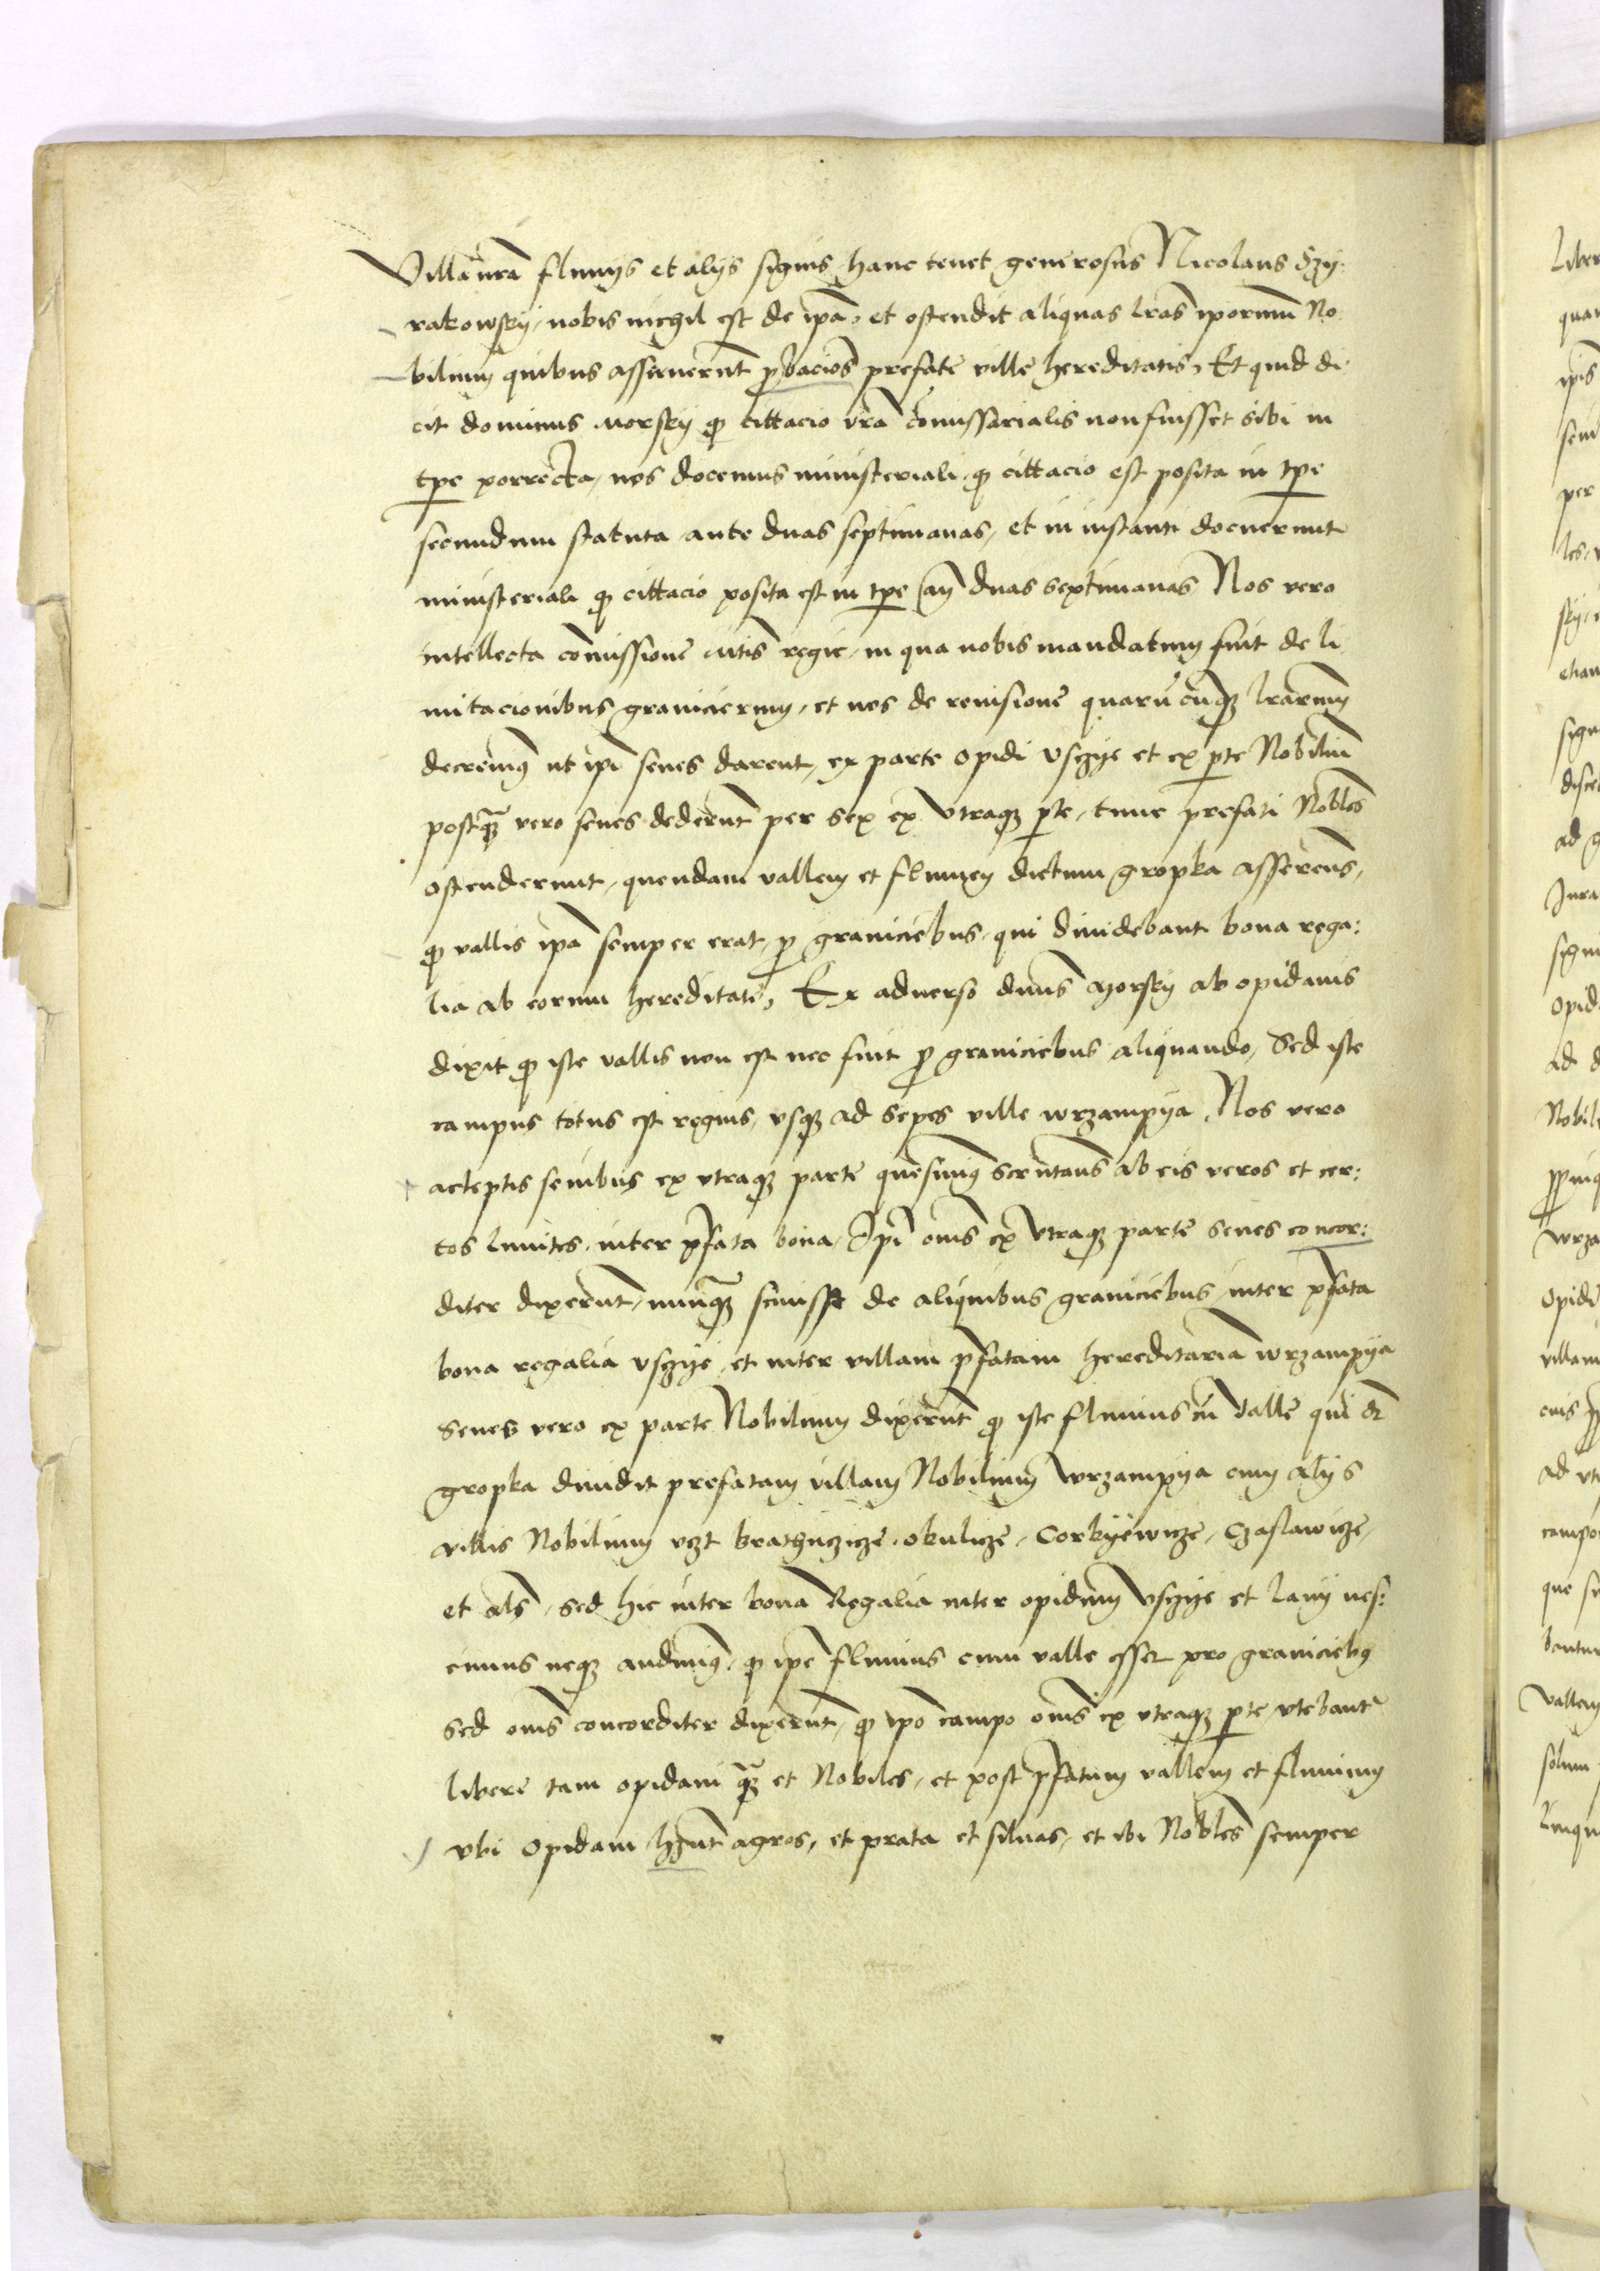 Villa nrã fluuijs et alijs signis hanc tenet generosus Nicolaus Szy:
rakowskij, nobis nichil est de ipã, et ostendit aliquas lras ipormm No
bilium quibus asserverunt probacioes prefate ville hereditatis, Et quid di
cit dominus Morskij qp cittacio vra comissarialis non fuisset sibi in
tpe porrecta, nos docemus ministeriali qp cittacio est posita in tpe
secundum statuta ante duas septimanas, et in instanti docuerunt
ministeriali qp cittacio posita est in tpe an duas septimanas Nos vero
intellecta comissione Mtis regie, in qua nobis mandatum fuit de li
mitacionibus granicierum, et nos de reuisione quarucunqz lrarum
decreuimq ut ipi senes darent, ex parte opidi Vszije et ex pte Nobiliu
postqz vero senes dederunt per sex ex Vtraqz pte, tunc prefati Nobles
ostenderunt, quendam vallem et flumen dictum gropka asserens,
qp vallis ipa semper erat, p graniciebus, qui diuidebant bona rega:
lia ab eorum hereditate, Ex aduerso dnus Morskij ab opidanis
dixit qp iste vallis non est nec fuit p graniciebus aliquando, Sed iste
campus totus est regius, vsqz ad sepes ville wrzampija, Nos vero
acteptis senibus ex vtraqz parte quesiuimq scrutans ab eis veros et cer:
tos limites inter pfata bona, Ipi oms ex Vtraqz parte senes concor:
diter dixerunt, nunqz sciuisse de aliquibus graniciebus inter pfata
bona regalia vszije, et inter villam pfatam hereditaria wrzampija
Senes vero ex parte Nobilium dixerunt qp iste fluuius cu Valle qui dr
gropka diuidit prefatam villam Nobilium wrzampija cum alijs
villis Nobilium vzt brathuczicze, okulicze, Corkyewicze, Czaslawicze,
et als, sed hic inter bona Regalia inter opidum Vszije et Lanij nes:
cimus neqz audiuimq, qp ipe fluuius cum valle esset pro graniciebq
sed oms concorditer dixerunt, qp ipo campo oms ex vtraqz pte, vtebant
libere tam opidani qz et Nobiles, et post pfatum vallem et fluuium
vbi opidani hnt agros, et prata et siluas, et ibi Nobles semper